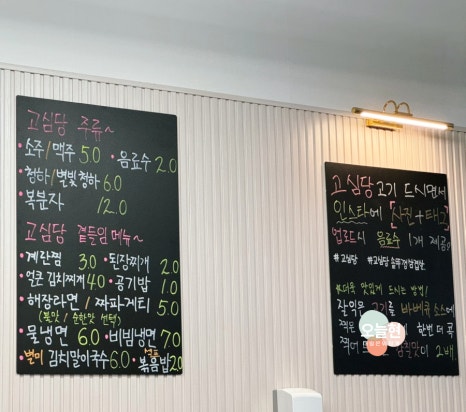 고심당 주류~
· 소주/맥주 5.0 · 음료수 2.0
· 청하/별빛청하 6.0
· 복분자 12.0
고심당 곁들임 메뉴~
· 계란찜 3.0 · 된장찌개 2.0
· 김치찌개 4.0 · 공기밥 1.0
· 해장라면 / 짜파게티 5.0
(불맛 / 순한맛 선택)
· 물냉면 6.0 · 비빔냉면 7.0
별미 김치말이국수 6.0 볶음밥 2.0
고심당 고기 드시면서
인스타에 [사진+태그]
업로드시 음료수 1개 제공
#고심당 #고심당
#더욱 맛있게 드시는 방법!
고기를 바베큐 소스에
한번 더 콕
찍어 감칠맛이 2배
오늘현